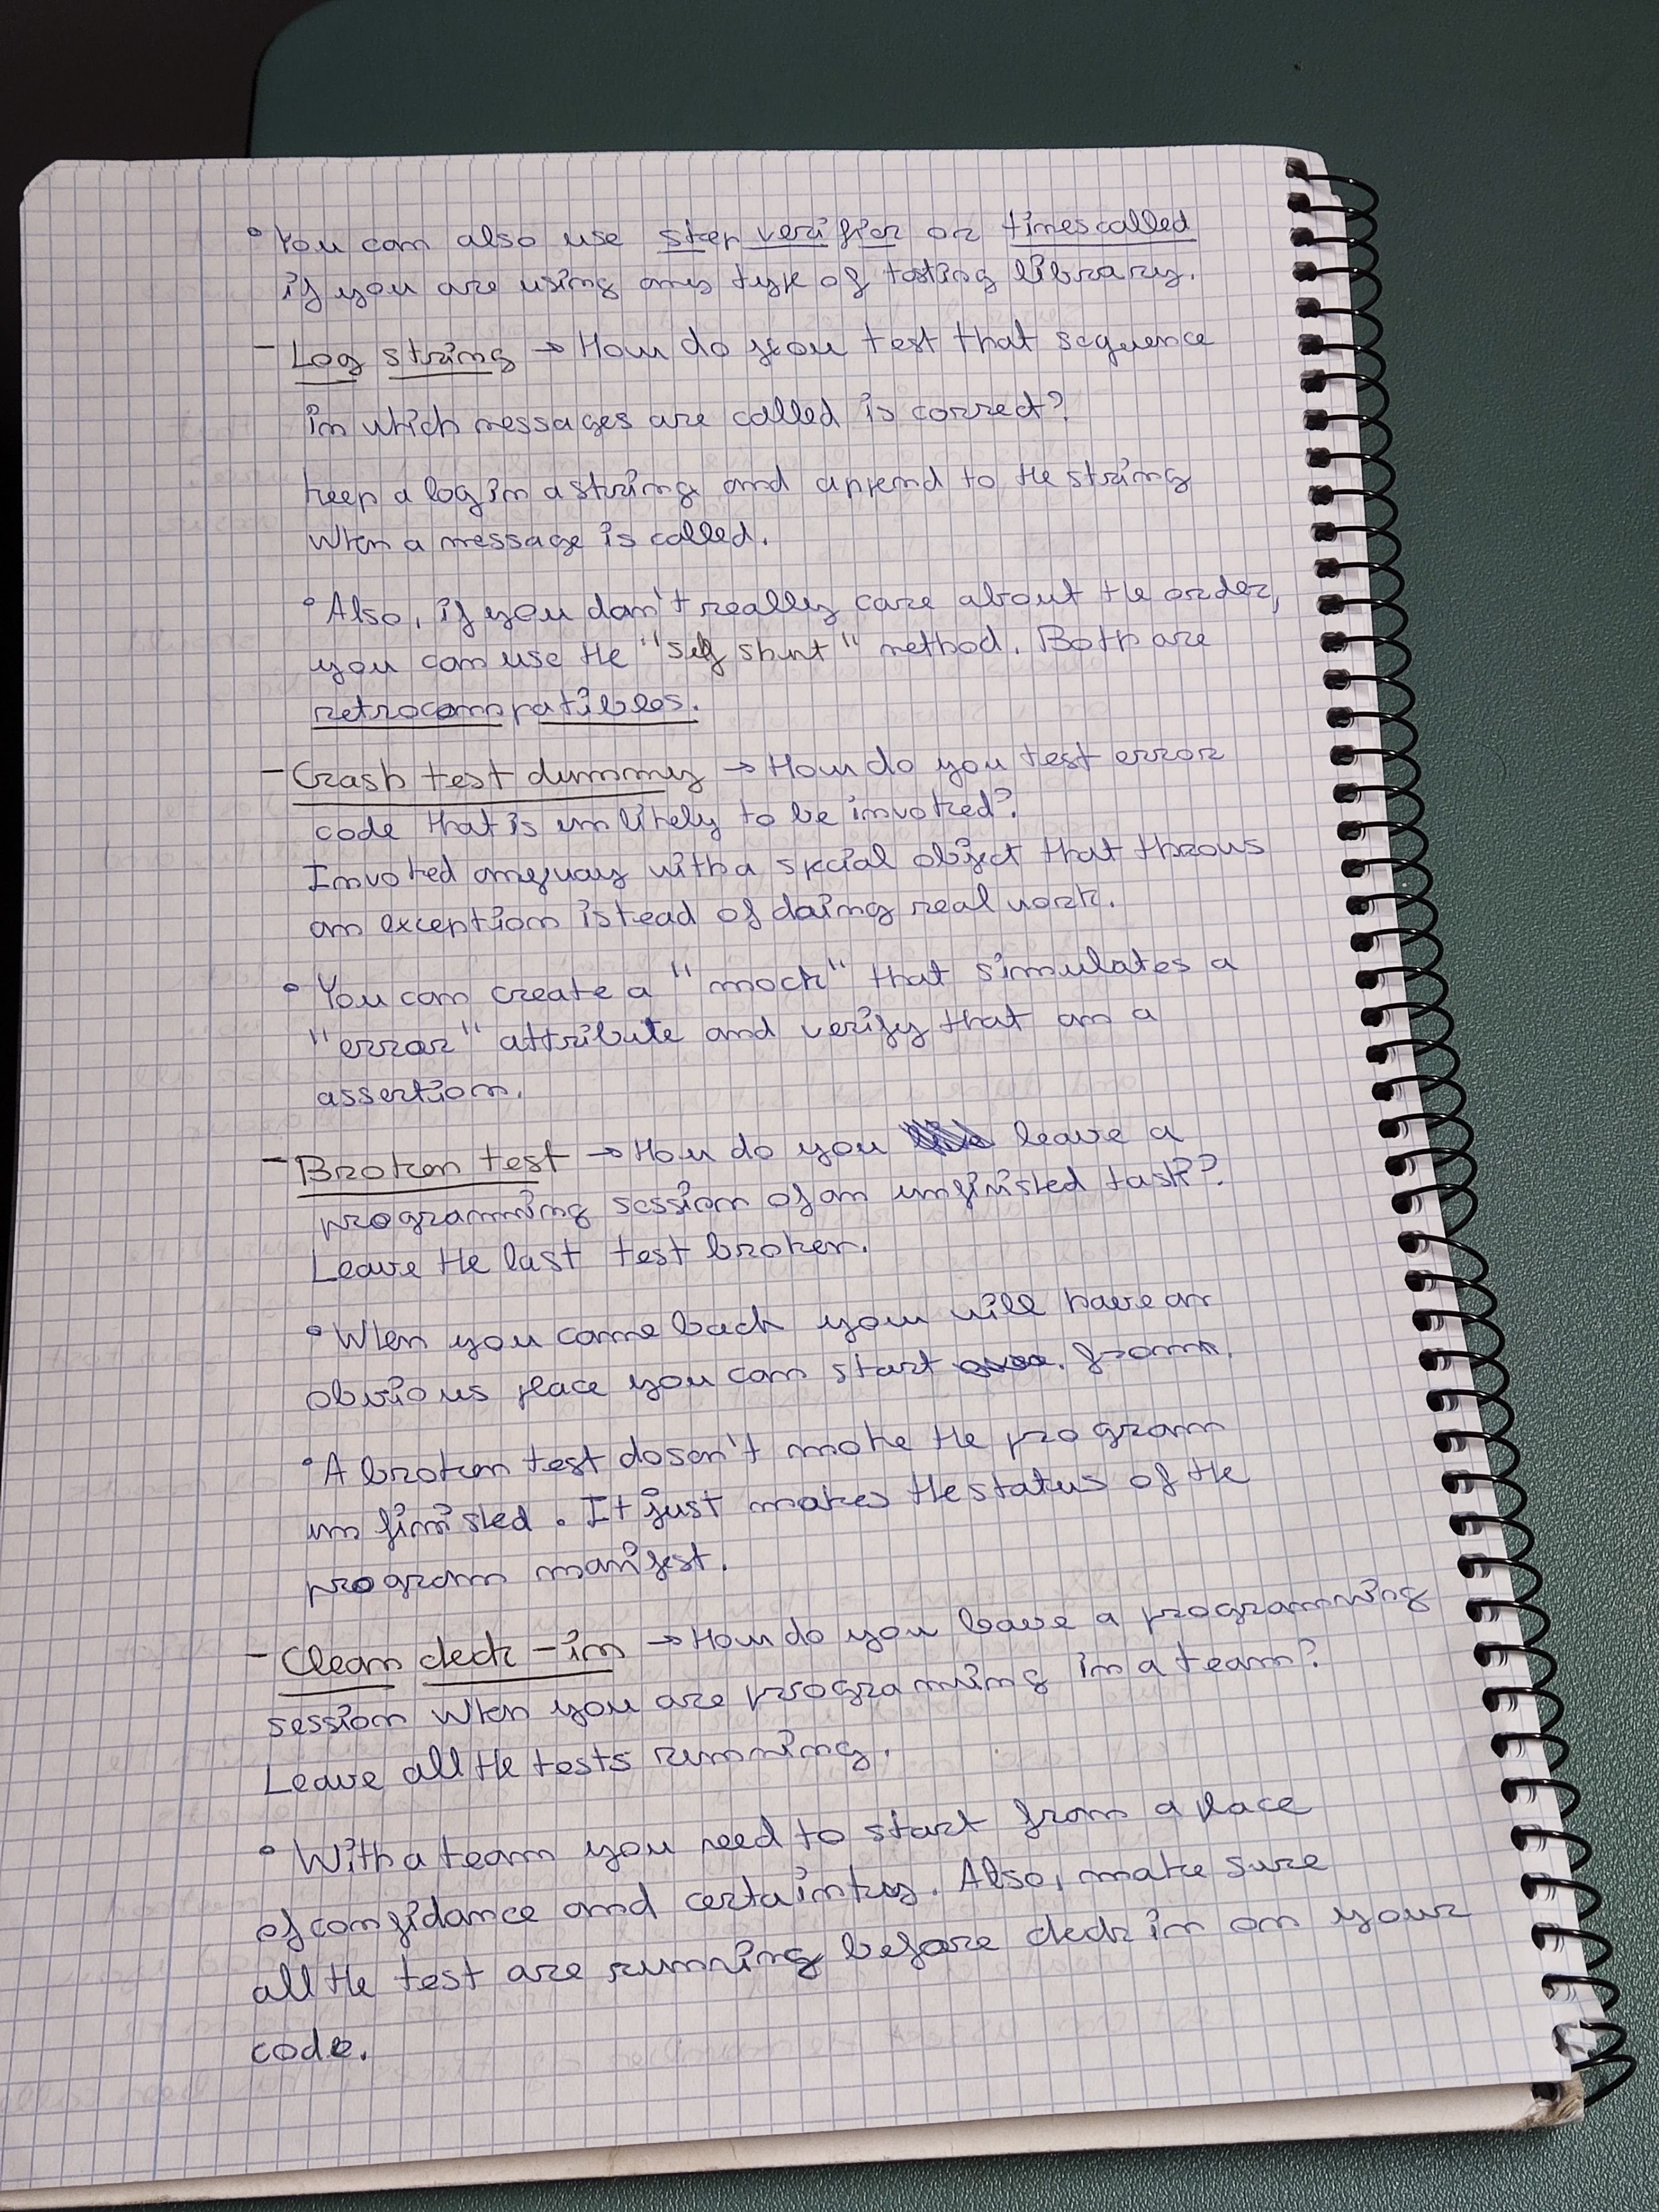 ° You can also use step verifier or times called
if you are using any type of testing library.
- Log string → How do you test that sequence
in which messages are called is correct?
keep a log in a string and append to the string
when a message is called.
° Also, if you don't really care about the order,
you can use the "self shunt" method. Both are
retrocompatibles.
- Crash test dummy → How do you test error
code that is unlikely to be invoked?
Invoked anyway with a special object that throws
an exception istead of doing real work.
° You can create a "mock" that simulates a
"error" attribute and verify that on a
assertion.
- Broken test → How do you leave a
programming session of an unfinished task?
Leave the last test broken.
° When you come back you will have an
obvious place you can start from.
° A broken test doesn't make the program
unfinished. It just makes the status of the
program manifest.
- Clean check-in → How do you leave a programming
session when you are programming in a team?
Leave all the tests running.
° With a team you need to start from a place
of confidance and certainty. Also, make sure
all the test are running before check in on your
code.